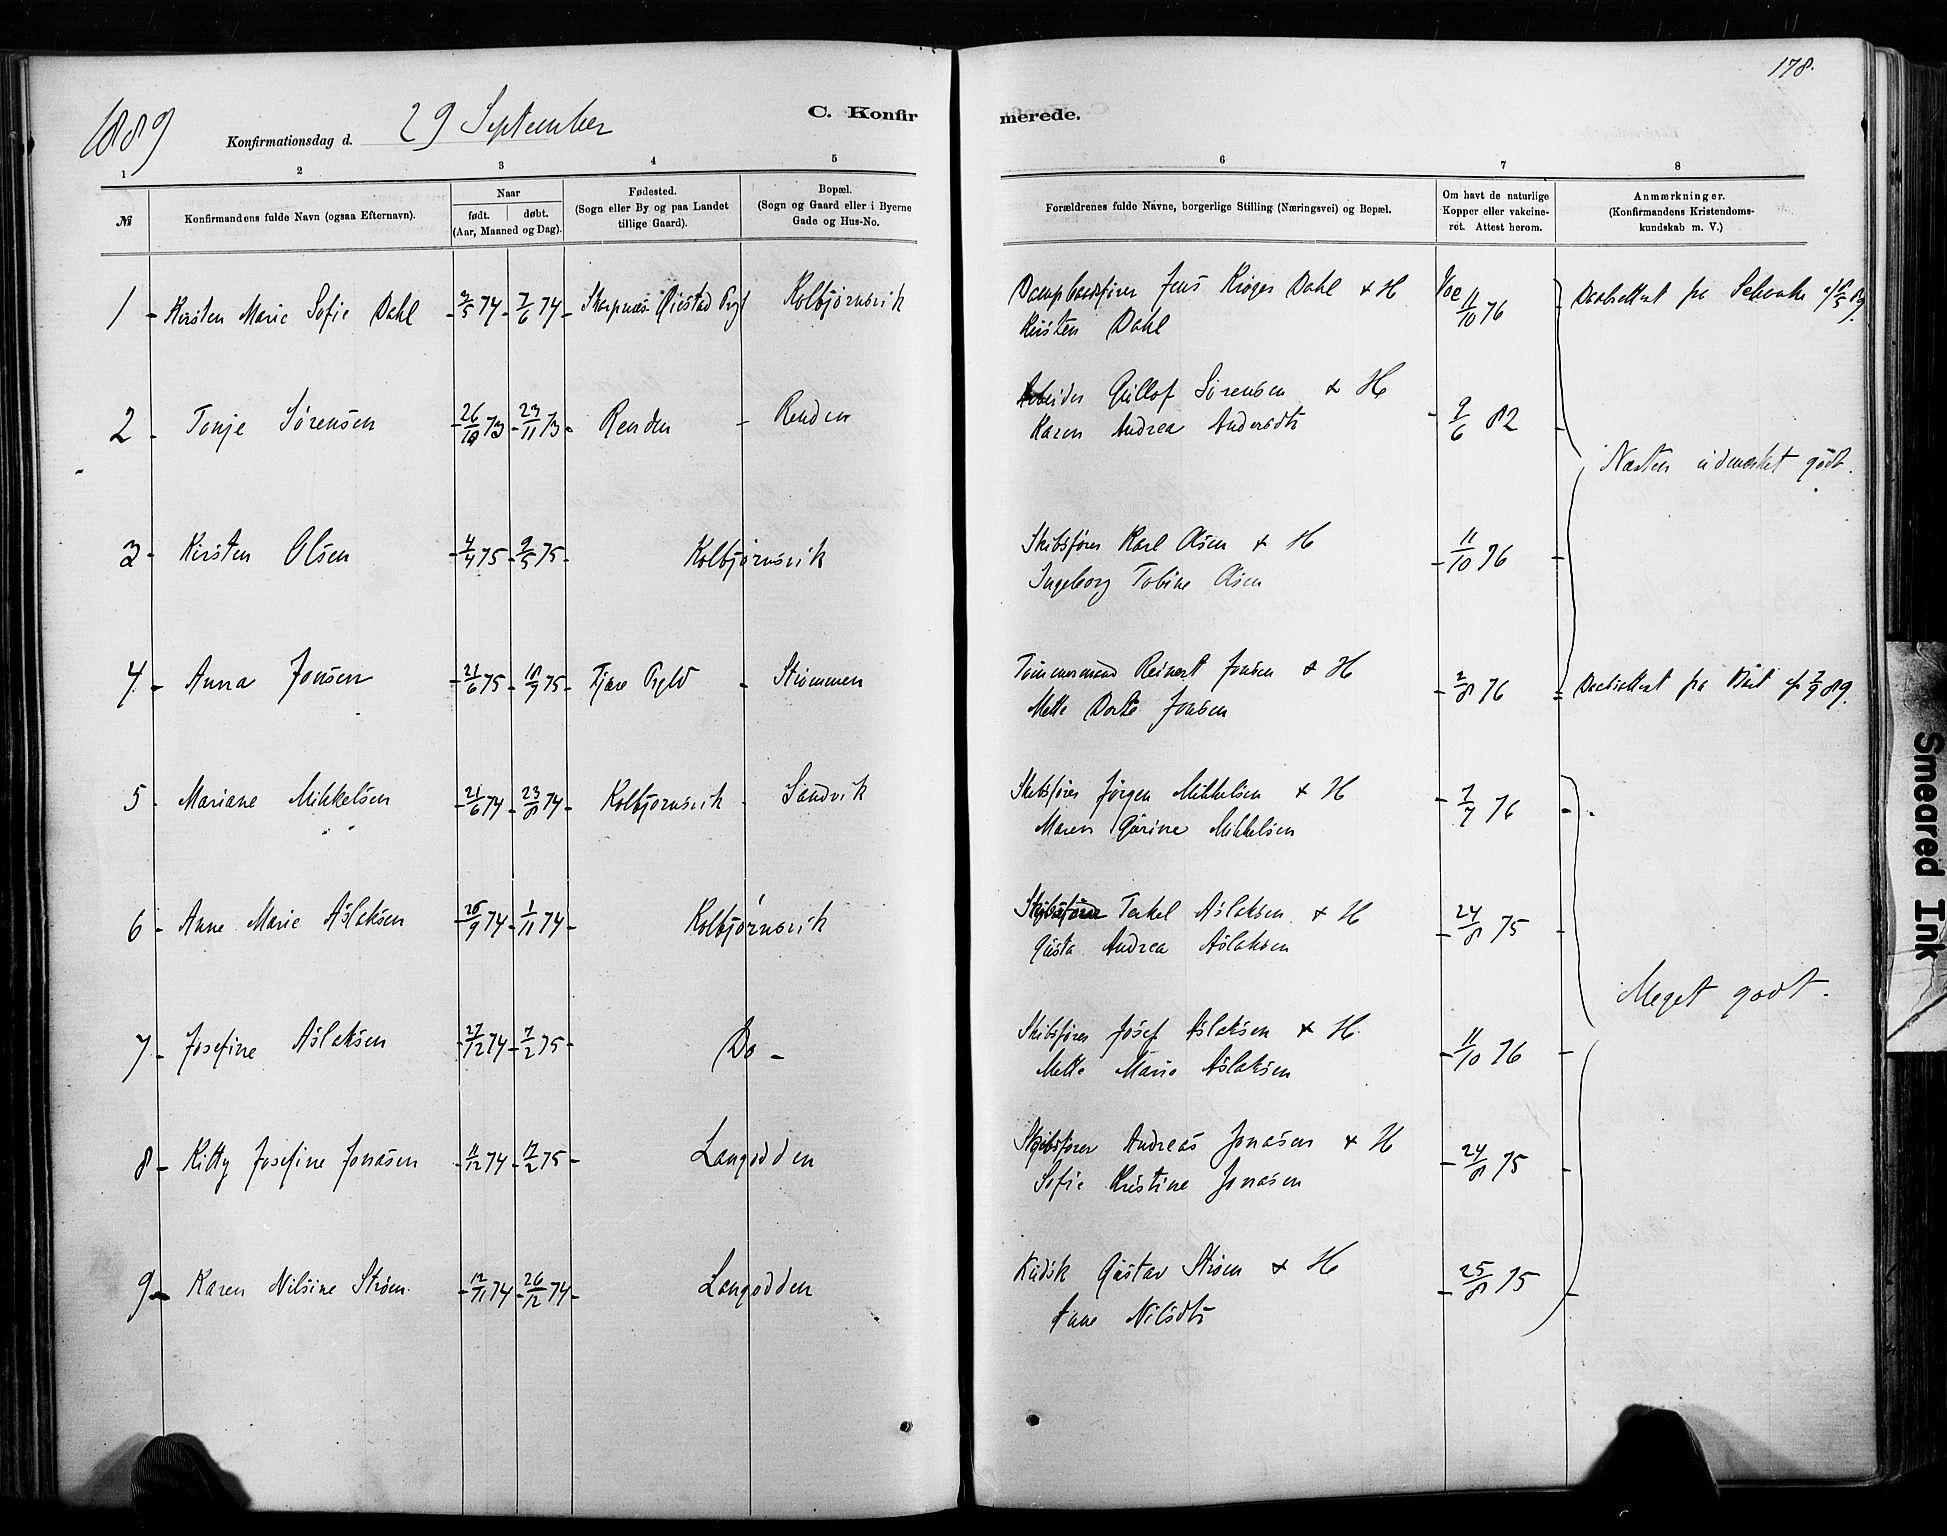 178.
1889
Konfirmationsdag d. 29 September
C. Konfirmerede.
1 2 3 4 5 6 7 8
№
Konfirmandens fulde Navn (ogsaa Efternavn).
Naar
født. døbt.
(Aar, Maaned og Dag).
Fødested.
(Sogn eller By og paa Landet
tillige Gaard).
Bopæl.
(Sogn og Gaard eller i Byerne
Gade og Hus-No.
Forældrenes fulde Navne, borgerlige Stilling (Næringsvei) og Bopæl.
Om havt de naturlige
Kopper eller vakcine-
ret. Attest herom.
Anmærkninger.
(Konfirmandens Kristendoms-
kundskab m. V.)
1 - Kirsten Marie Sofie Dahl 2/5 74 - 7/6 74 - Skarpnæs Øiestad Prgj Kolbjørnsvik Dampbaadsfører Jens Krøger Dahl & H Vac 11/10 76 Daabsattest fra
Kirsten Dahl
2 - Tonje Sørensen - 26/10 73 - 23/11 73 - Renden - Renden Arbeider Gullof Sørensen & H - 9/6 82 -
Karen Andrea Andersdtr
Næsten udmærket godt.
3 - Kirsten Olsen - 4/4 75 - 9/5 75 - Kolbjørnsvik Skibsfører Karl Olsen & H - 11/10 76 -
Ingeborg Tobine Olsen
4 - Anna Jonsen - 21/6 75 - 18/9 75 - Fjære Prgld - Strømmen Tømmermand Reinert Jonsen & H - 2/8 76 - Daabsattest fra 7/9 89.
Mette Dorte Jonsen
5 - Mariane Mikkelsen - 21/6 74 - 23/8 74 - Kolbjørnsvik - Sandvik Skibsfører Jørgen Mikkelsen & H - 7/7 76 -
Maren Gurine Mikkelsen
6 - Anne Marie Aslaksen - 28/9 74 - 1/11 74 - Kolbjørnsvik Skibsfører Terkel Aslaksen & H - 24/8 75 -
Gusta Andrea Aslaksen
Meget godt.
7 - Josefine Aslaksen - 27/12 74 - 7/2 75 - Do - Skibsfører Josef Aslaksen & H - 11/10 76 -
Mette Marie Aslaksen
8 - Kitty Josefine Jonasen - 11/12 74 - 7/2 75 - Langodden Skibsfører Andreas Jonasen & H - 24/8 75 -
Sofie Kristine Jonasen
9 - Karen Nilsine Strøm - 12/11 74 - 26/12 74 - Langodden Kudsk Gustav Strøm & H - 25/8 75 -
Anne Nilsdtr
Smeared Ink